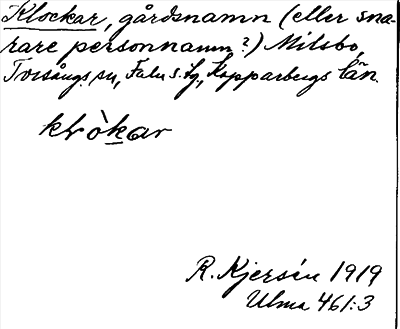 Klockar, gårdsnamn (eller sna-
rare personnamn?) Milsbo,
Torsångs sn, Falu s. lg, Kopparbergs län.
klòkar
R. Kjersén 1919
Ulma 461:3